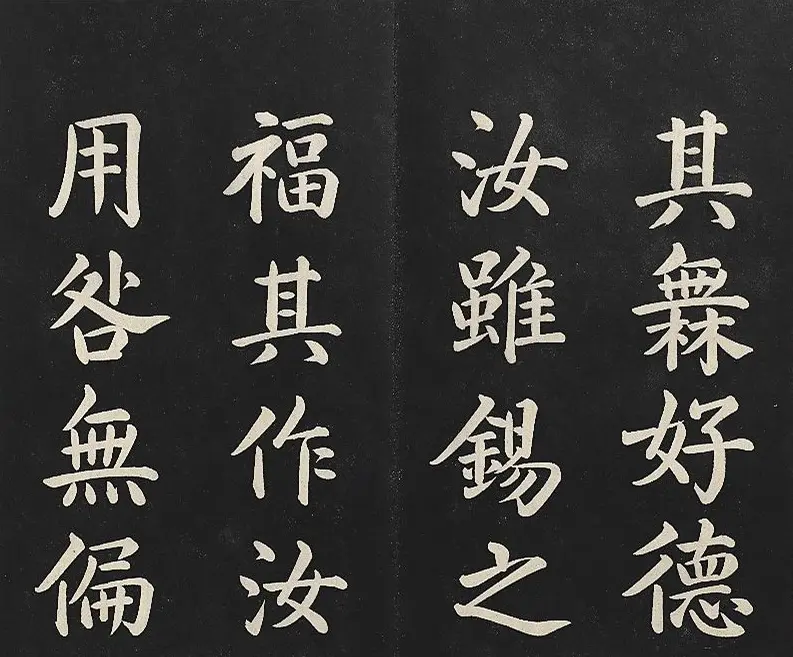 其橆好德
汝雖錫之
福其作汝
用咎無偏